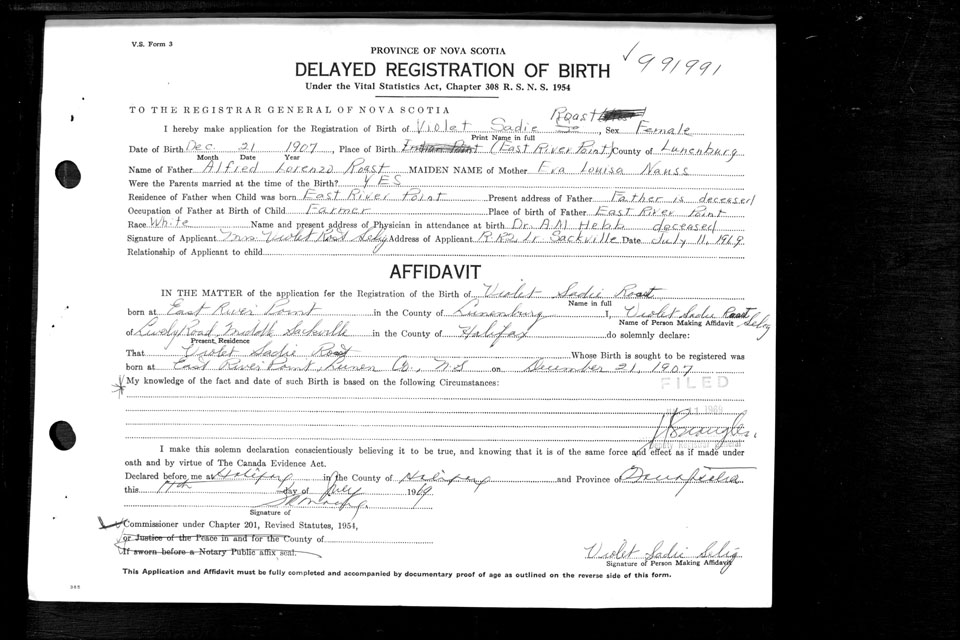 V.S. Form 3
991991
PROVINCE OF NOVA SCOTIA
DELAYED REGISTRATION OF BIRTH
Under the Vital Statistics Act, Chapter 308 R. S. N. S. 1954
TO THE REGISTRAR GENERAL OF NOVA SCOTIA
Roast
I hereby make application for the Registration of Birth of Violet Sadie, Sex Female
Print Name in full
Date of Birth Dec 21 1907, Place of Birth Indian Point (East River Point) County of Lunenburg
Month Date Year
Name of Father Alfred Lorenzo Roast MAIDEN NAME of Mother Eva Louisa Nauss
Were the Parents married at the time of the Birth? YES
Residence of Father when Child was born East River Point Present address of Father Father is deceased
Occupation of Father at Birth of Child Farmer Place of birth of Father East River Point
Race White Name and present address of Physician in attendance at birth Dr. A.M Hebb deceased
Signature of Applicant Mrs Violet Roast Selig Address of Applicant R R 2 Lr Sackville Date July 11, 1969
Relationship of Applicant to child
AFFIDAVIT
IN THE MATTER of the application for the Registration of the Birth of Violet Sadie Roast
Name in full
born at East River Point in the County of Lunenburg I, Violet Sadie Roast Selig
Name of Person Making Affidavit
of Lively Road, Middle Sackville in the County of Halifax do solemnly declare:
Present, Residence
That Violet Sadie Roast Whose Birth is sought to be registered was
born at East River Point, Lunen Co., N.S on December 21, 1907
FILED
My knowledge of the fact and date of such Birth is based on the following Circumstances:
11 1969
I make this solemn declaration conscientiously believing it to be true, and knowing that it is of the same force and effect as if made under
oath and by virtue of The Canada Evidence Act.
Declared before me at Halifax in the County of Halifax and Province of Nova Scotia
this 11th day of July 1969
Signature of
Commissioner under Chapter 201, Revised Statutes, 1954,
or Justice of the Peace in and for the County of
If sworn before a Notary Public affix seal.
Violet Sadie Selig
Signature of Person Making Affidavit
This Application and Affidavit must be fully completed and accompanied by documentary proof of age as outlined on the reverse side of this form.